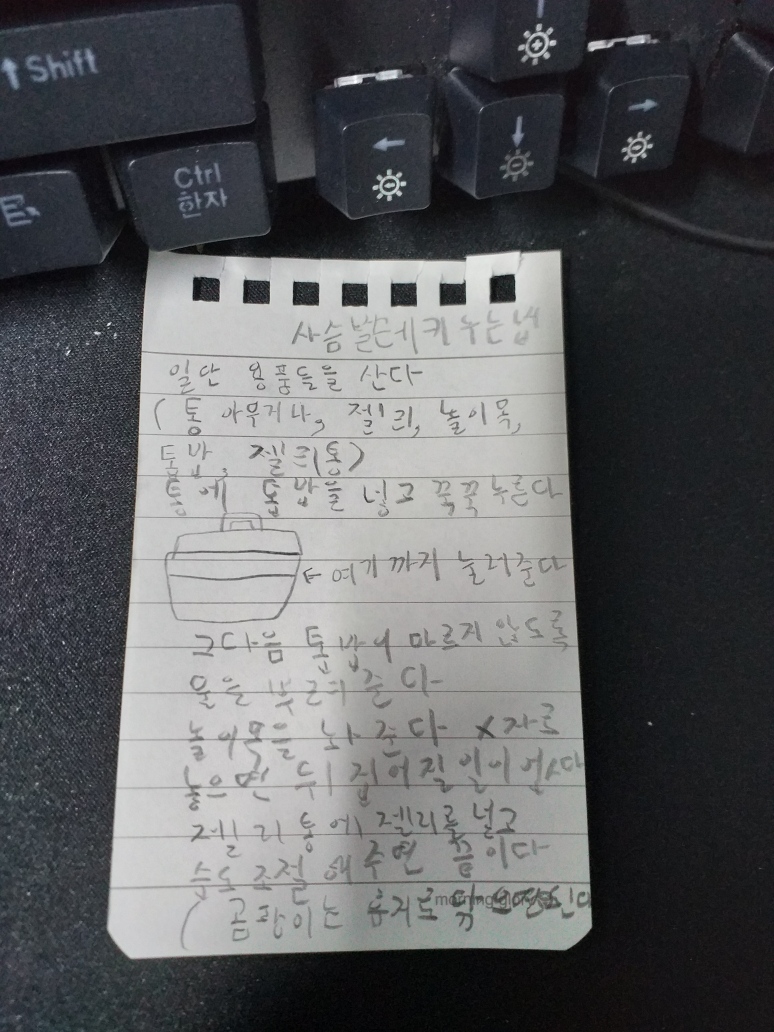 ↑Shift
Ctrl
한자
사슴벌레 키우는 법
일단 용품들을 산다
(통 아무거나, 젤리, 놀이목,
톱밥, 젤리통)
통에 톱밥을 넣고 꾹꾹 누른다
← 여기까지 눌러준다
그다음 톱밥이 마르지 않도록
물을 뿌려준다
놀이목을 놔준다 X자로
놓으면 뒤집어질 일이 없다
젤리통에 젤리를 넣고
습도 조절 해주면 끝이다
(곰팡이는 휴지로 닦으면된다
morning glory